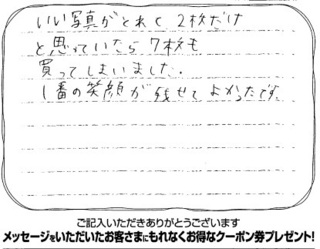 いい写真がとれて 2枚だけ
と思っていたら 7枚も
買ってしまいました.
1番の笑顔が残せてよかったです.
ご記入いただきありがとうございます
メッセージをいただいたお客さまにもれなくお得なクーポン券プレゼント!